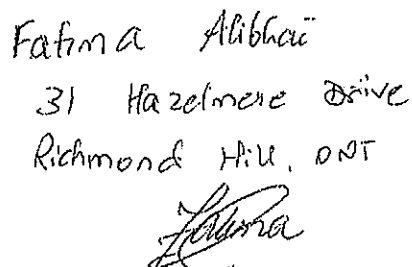 Fatima Alibhai
31 Hazelmere Drive
Richmond Hill, ONT
Fatima